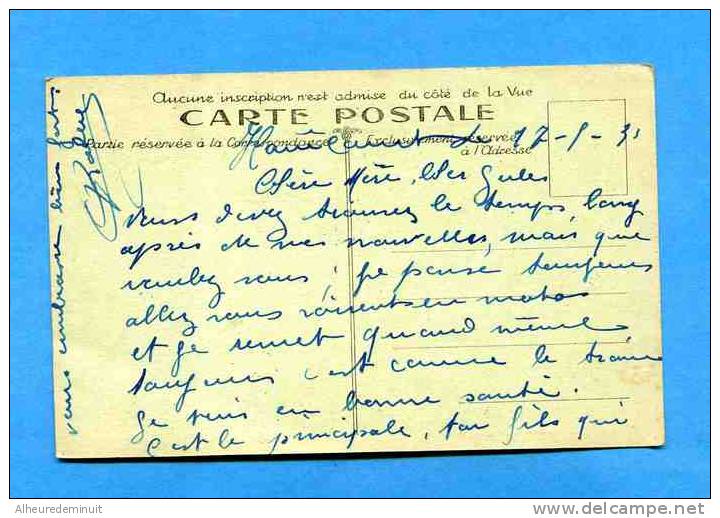 Aucune inscription n'est admise du côté de la Vue
CARTE POSTALE
Partie réservée à la Correspondance
Exclusivement réservée
à l'Adresse
17-5-31
Chère Mère, Cher Jules
Vous devez trouver le temps long
après de mes nouvelles, mais que
voulez vous, je pense toujours
allez vous en moto
et je remet quand même
toujours c'est comme le
Je suis en bonne santé.
C'est le principale, ton fils qui
vous embrasse bien fort
Alheuredeminuit
delcampe.net